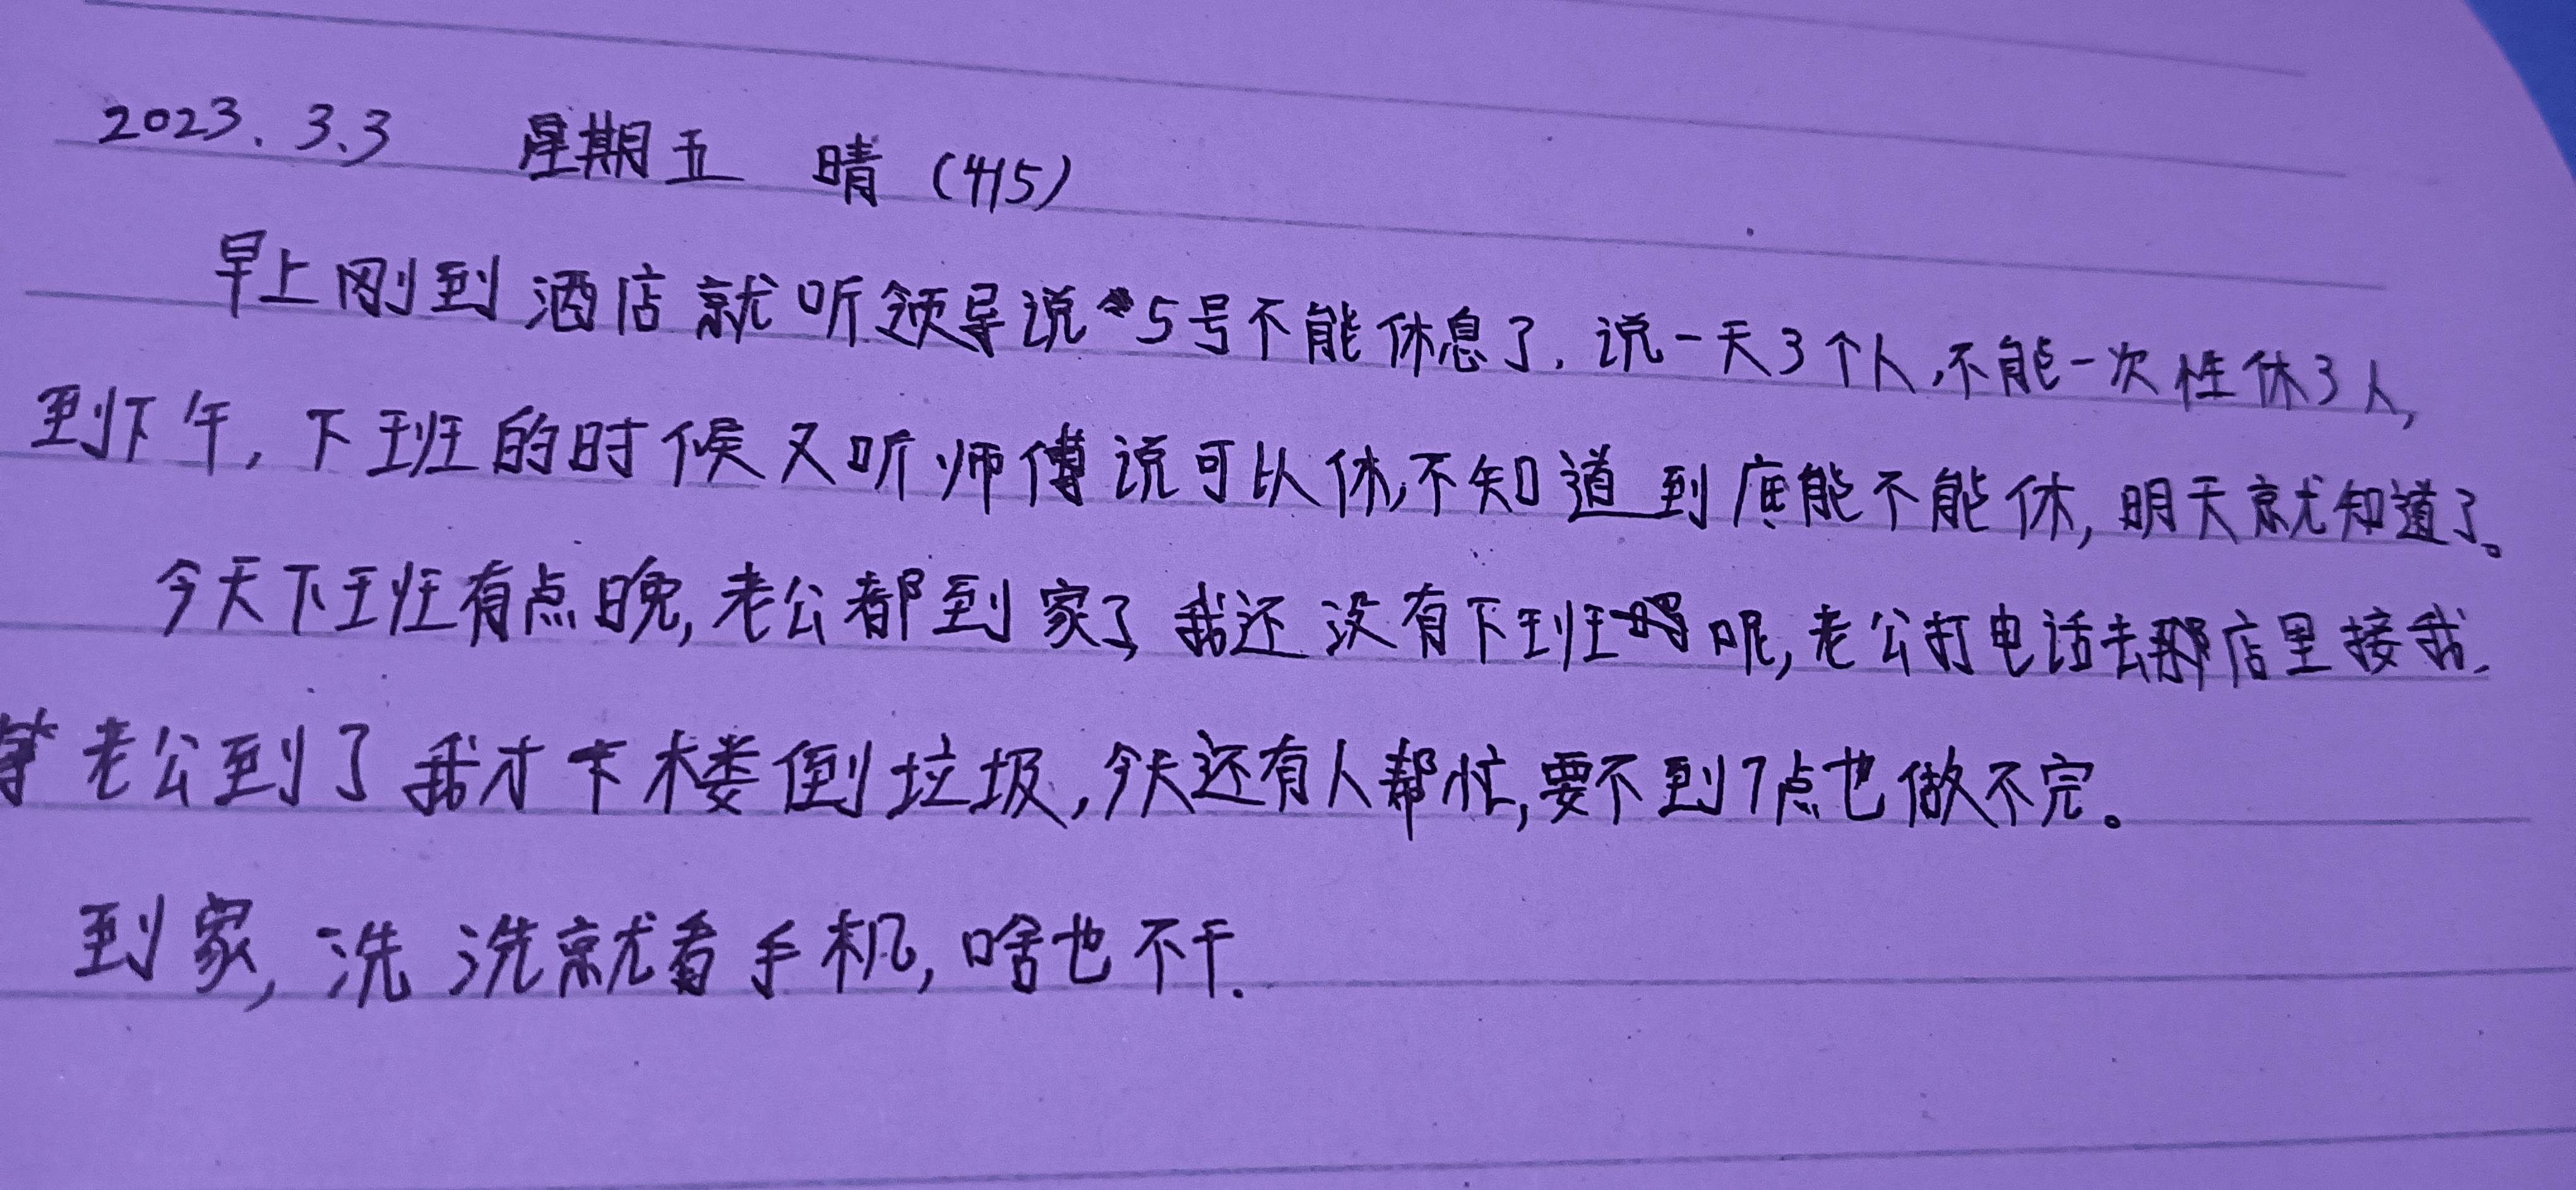 2023.3.3 星期五 晴 (415)
早上刚到酒店就听领导说5号不能休息了,说一天3个人,不能一次性休3人,
到下午,下班的时候又听师傅说可以休,不知道到底能不能休,明天就知道了。
今天下班有点晚,老公都到家了我还没有下班呢,老公打电话去那店里接我,
等老公到了我才下楼倒垃圾,今天还有人帮忙,要不到7点也做不完。
到家,洗洗就看手机,啥也不干.